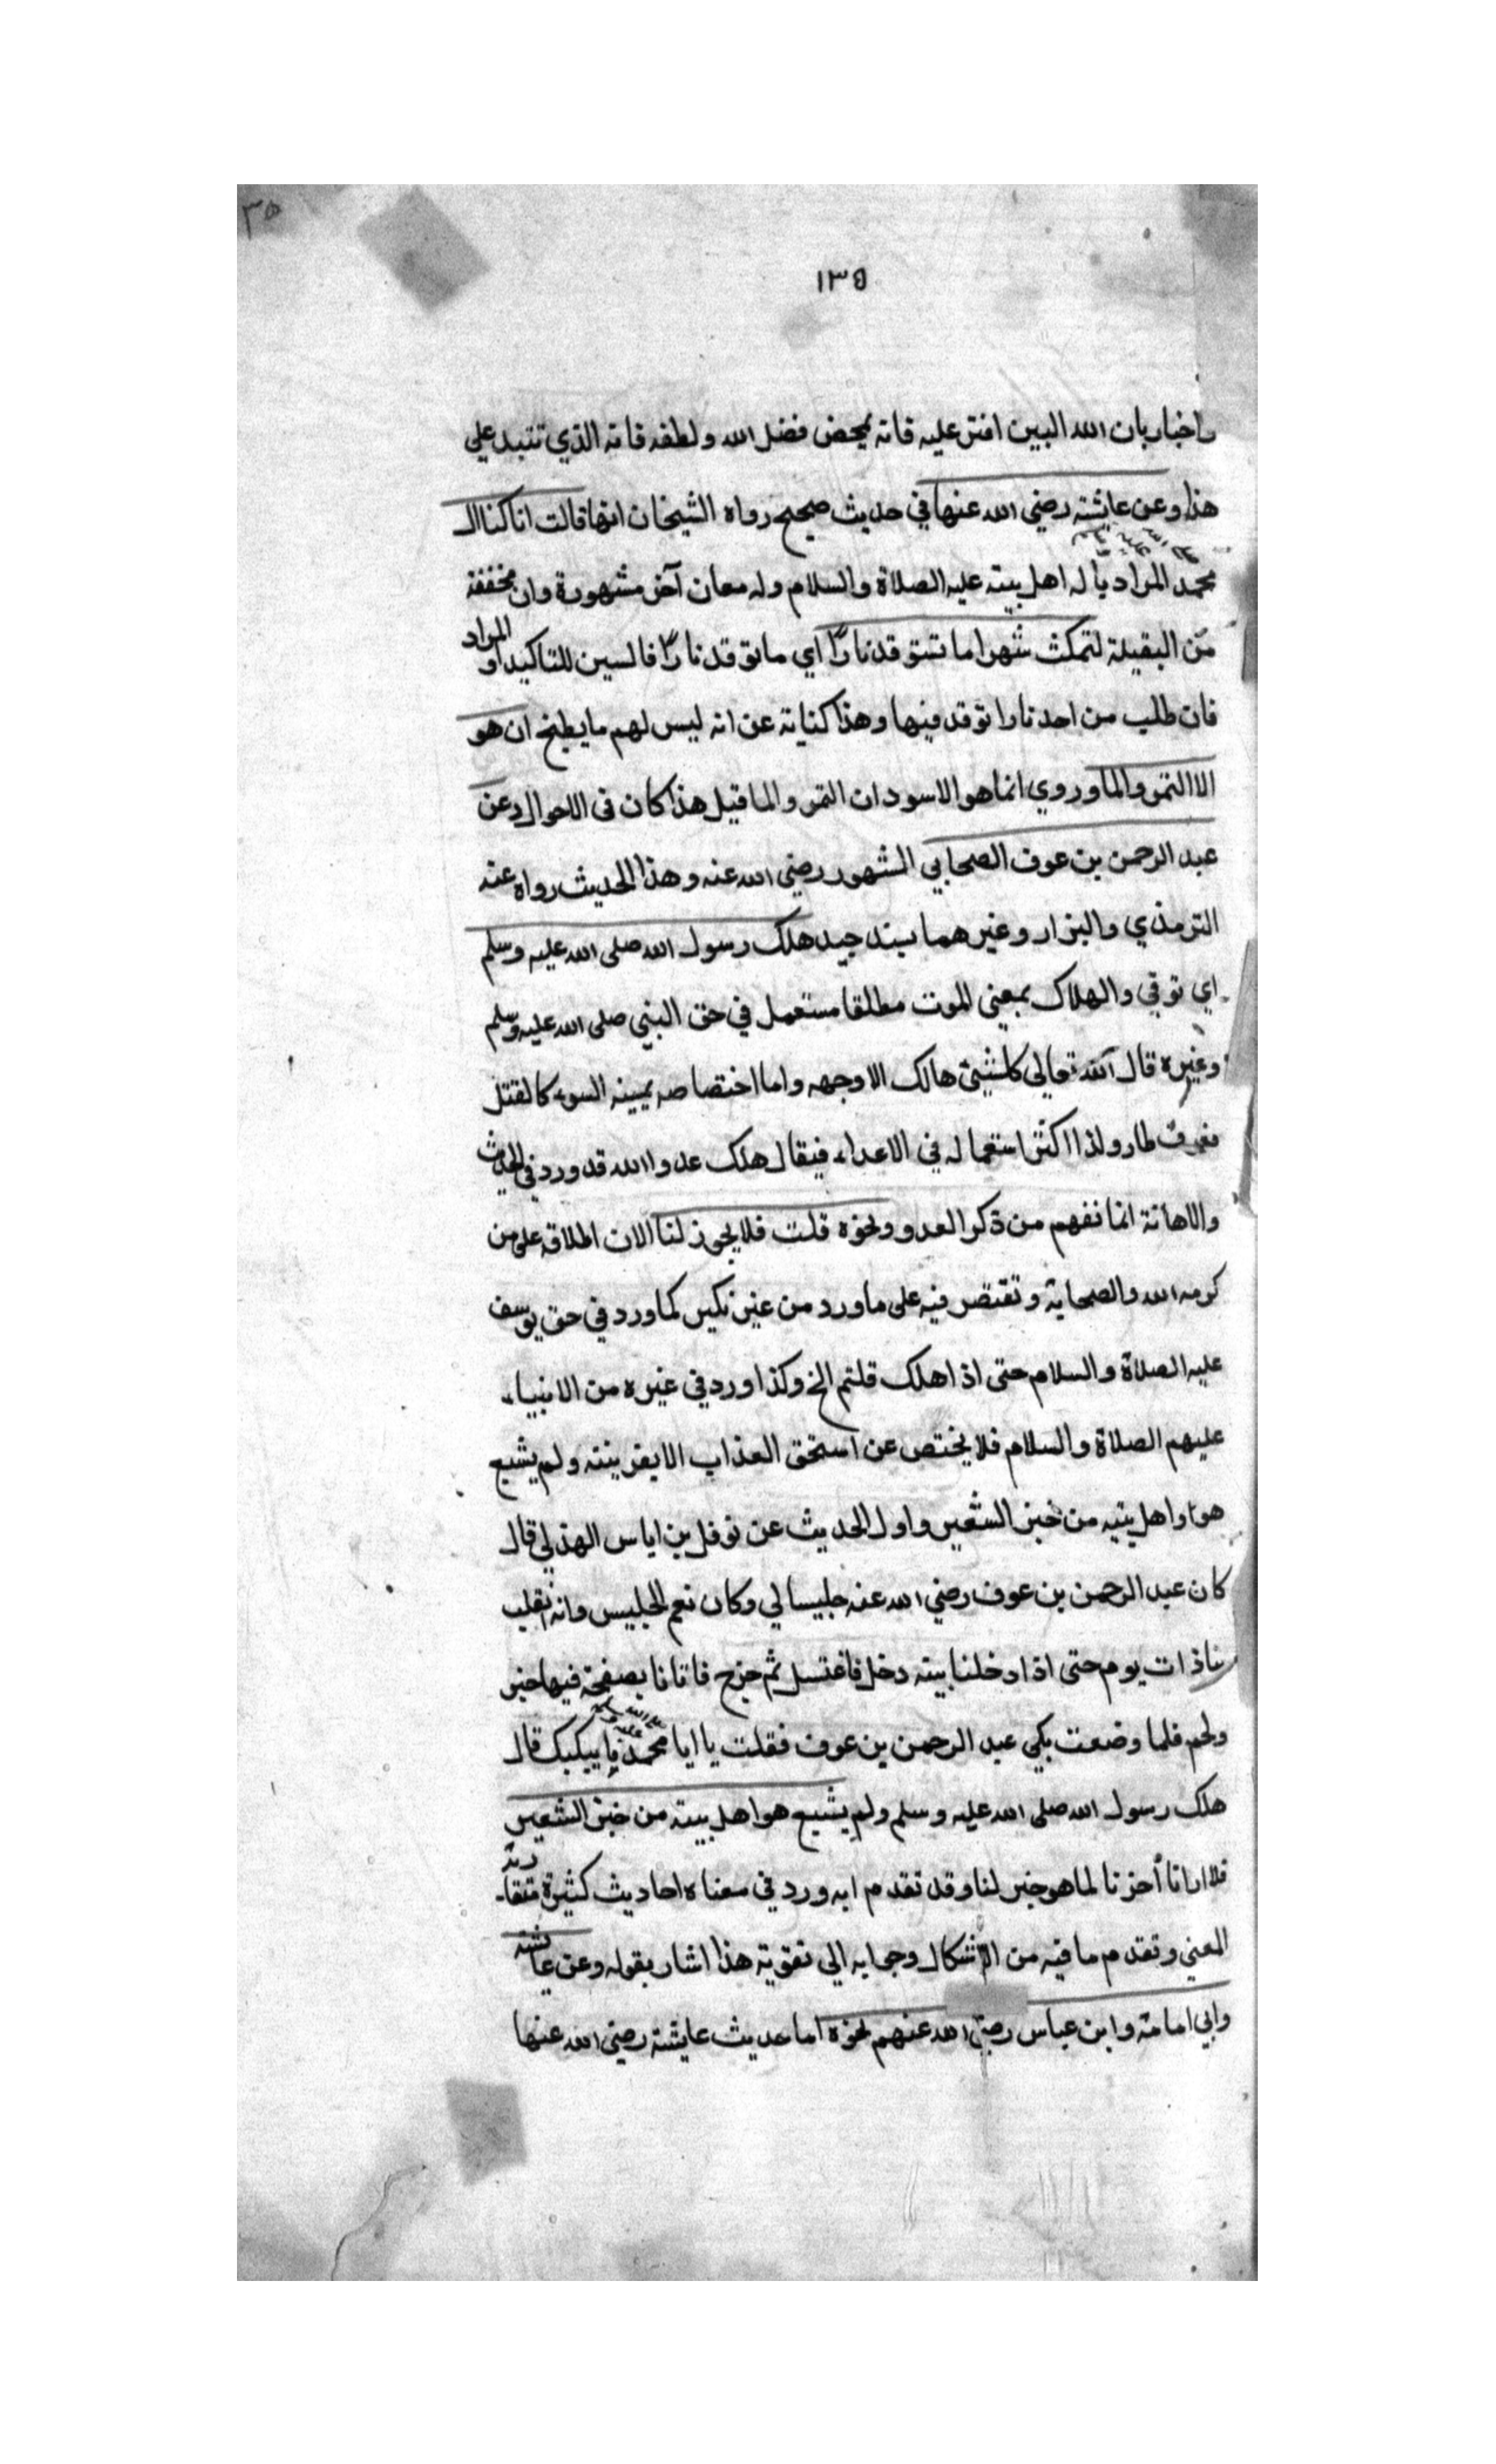 ٣٥
١٣٥
باخبار بان الله البين افتر عليه فانه بمحض فضل الله ولطفه فانه الذي تتبد علي
هذا وعن عايشة رضي الله عنها في حديث صحيح رواه الشيخان انها قالت انا كنا ال
صلى الله عليه وسلم
محمد المراد بآله اهل بيته عليه الصلاة والسلام وله معان آخر مشهورة وان مخففة
من البقيلة لتمكث شهرا ما تستوقد نارا اي ما توقد نارا فالسين للتاكيد او المراد
فان طلب من احد نارا توقد فيها وهذا كناية عن انه ليس لهم ما يطبخ ان هو
الا التمر والما وروي انما هو الاسودان التمر والما قيل هذا كان في الاحوال وعن
عبد الرحمن بن عوف الصحابي المشهور رضي الله عنه وهذا الحديث رواه عنه
الترمذي والبزار وغيرهما بسند جيد هلك رسول الله صلى الله عليه وسلم
اي توفي والهلاك بمعني الموت مطلقا مستعمل في حق النبي صلى الله عليه وسلم
وغيره قال الله تعالي كل شيئ هالك الا وجهه واما اختصاصه بميتة السوء كالقتل
فعرف طار ولذا اكثر استعماله في الاعداء فيقال هلك عدو الله قد ورد في الحديث
والاهانة انما نفهم من ذكر العدو ونحوه قلت فلا يجوز لنا الان اطلاقه على من
كرمه الله والصحابة وتقتصر فيه على ما ورد من غير نكير كما ورد في حق يوسف
عليه الصلاة والسلام حتى اذا هلك قلتم الخ وكذا ورد في غيره من الانبياء
عليهم الصلاة والسلام فلا يختص عن استحق العذاب الا بقرينته ولم يشبع
هو واهل بيته من خبز الشعير واول الحديث عن نوفل بن اياس الهذلي قال
كان عبد الرحمن بن عوف رضي الله عنه جليسا لي وكان نعم الجليس وانه انقلب
بنا ذات يوم حتى اذا دخلنا بيته دخل فاغتسل ثم خرج فاتانا بصفحة فيها خبز
صلى الله عليه وسلم
ولحم فلما وضعت بكي عبد الرحمن بن عوف فقلت يا ابا محمد ما يبكيك قال
هلك رسول الله صلى الله عليه وسلم ولم يشبع هو اهل بيته من خبز الشعير
فلا ارانا أخرنا لما هو خير لنا وقد تقدم انه ورد في معناه احاديث كثيرة متقاربة
المعني وتقدم ما فيه من الاشكال وجوابه الي تقوية هذا اشار بقوله وعن عايشة
وابي امامة وابن عباس رضي الله عنهم نحوه اما حديث عايشة رضي الله عنها